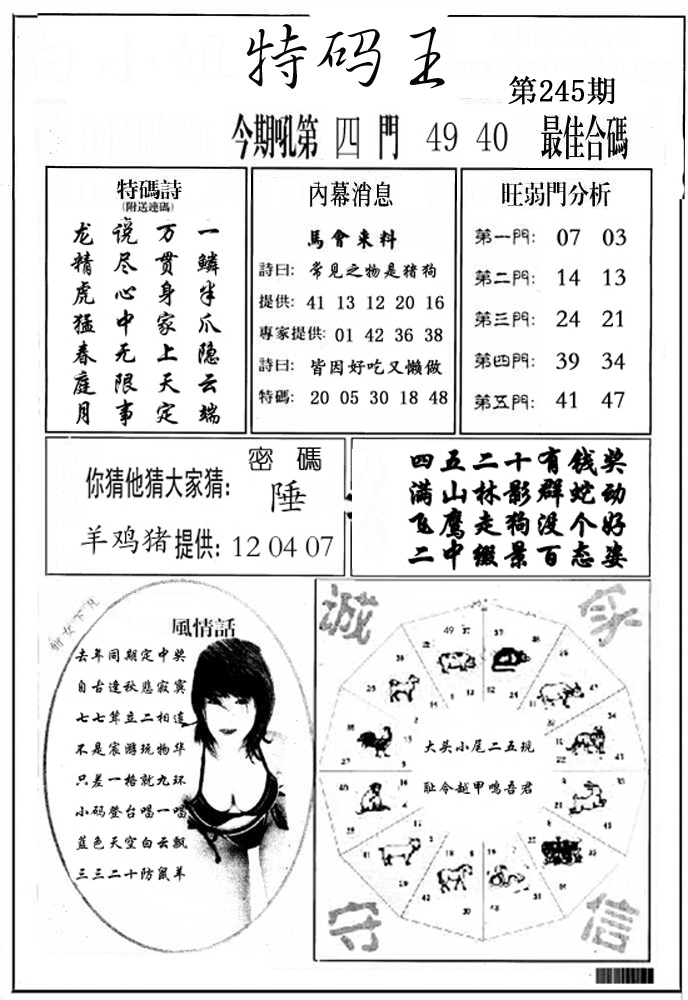 特码王
第245期
今期吼第 四 門 49 40 最佳合碼
特碼詩
(附送連碼)
龙 说 万 一
精 尽 贯 鳞
虎 心 身 半
猛 中 家 爪
春 无 上 隐
庭 限 天 云
月 事 定 端
內幕消息
馬會来料
詩曰: 常见之物是猪狗
提供: 41 13 12 20 16
專家提供: 01 42 36 38
詩曰: 皆因好吃又懒做
特碼: 20 05 30 18 48
旺弱門分析
第一門: 07 03
第二門: 14 13
第三門: 24 21
第四門: 39 34
第五門: 41 47
密碼
你猜他猜大家猜:
陲
羊鸡猪提供: 12 04 07
四五二十有钱奖
满山林影群蛇动
飞鹰走狗没个好
二中缀景百态姿
風情話
去年同期定中奖
自古逢秋悲寂寞
七七茸立二相连
不是宸游玩物华
只差一格就九环
小码登台唱一唱
蓝色天空白云飘
三三二十防鼠羊
诚
家
大头小尾二五现
耻令越甲鸣吾君
49 37
守
信